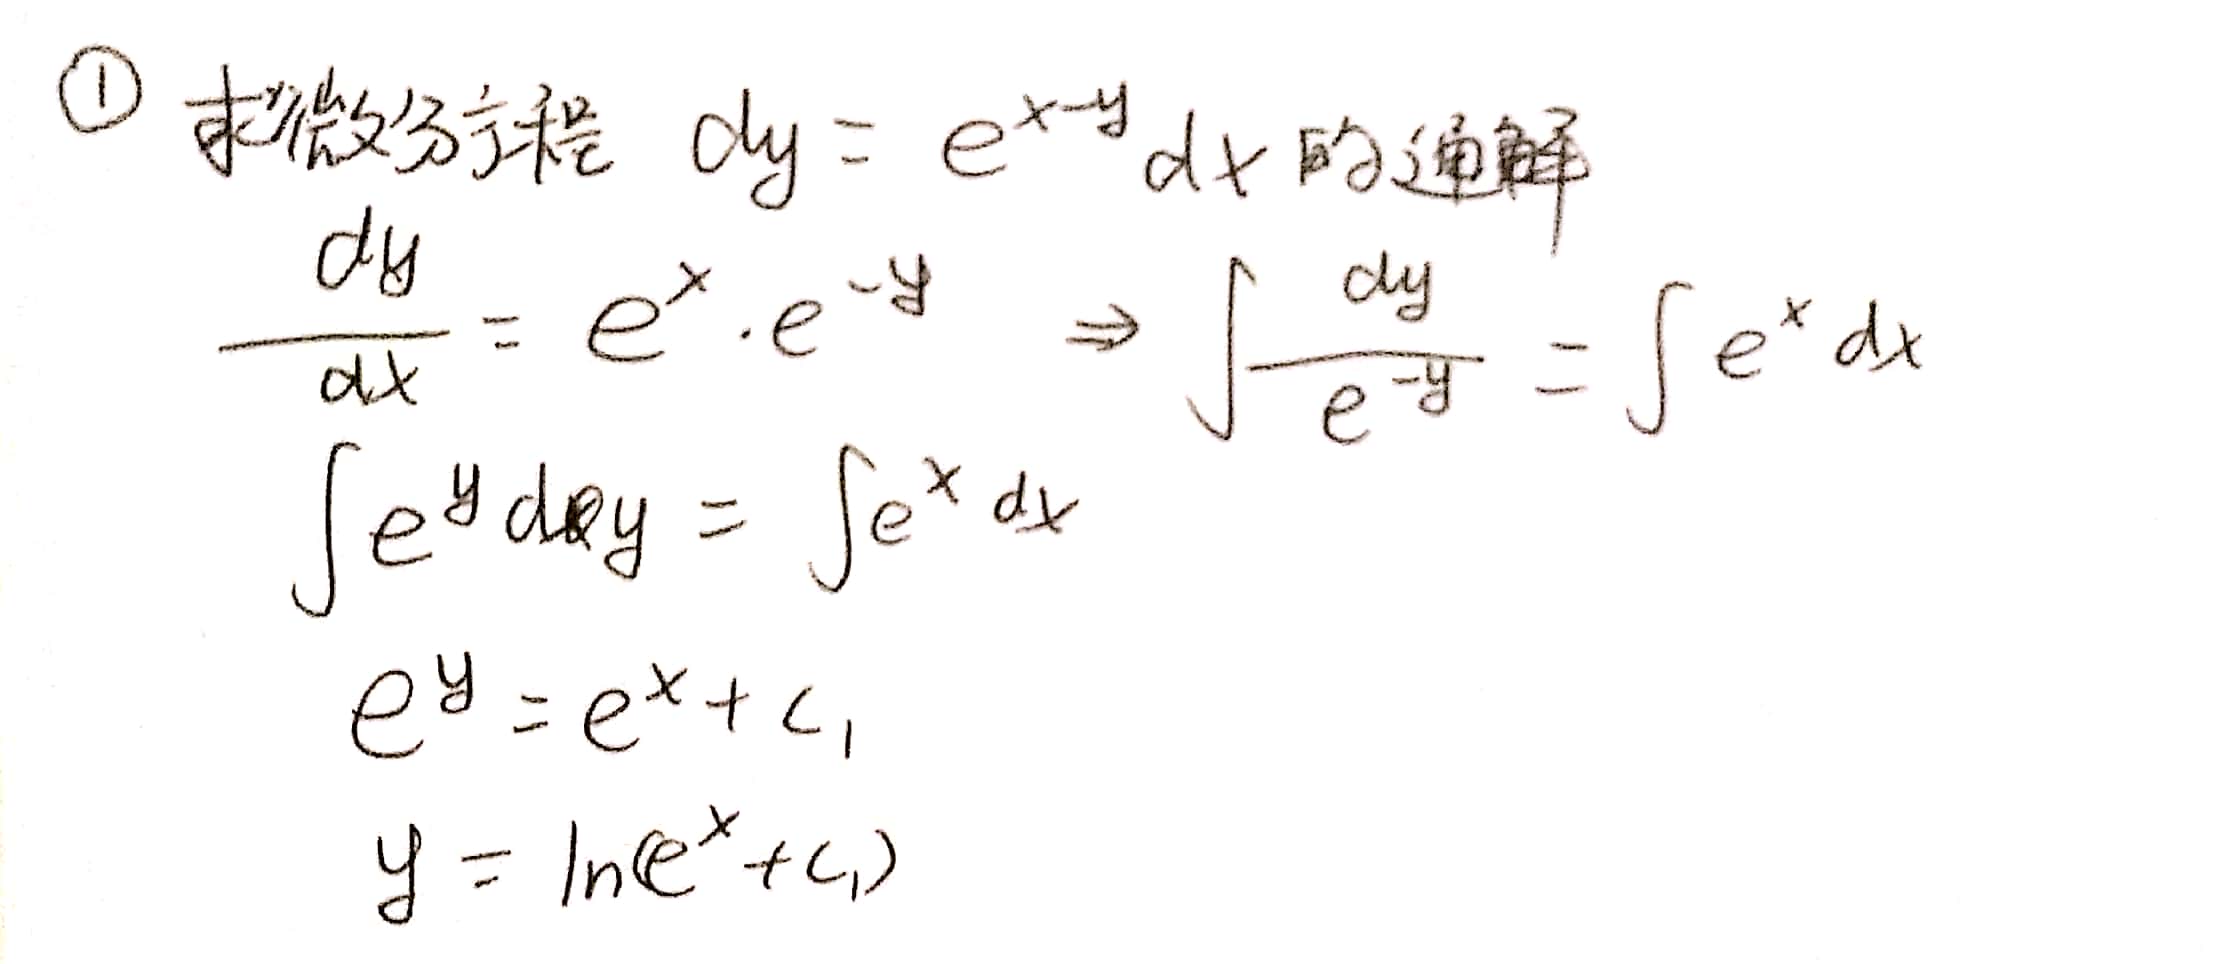 ① 求微分方程 dy = e^{x-y} dx 的通解
\frac{dy}{dx} = e^x · e^{-y} ⇒ ∫ \frac{dy}{e^{-y}} = ∫ e^x dx
∫ e^y dy = ∫ e^x dx
e^y = e^x + c_1
y = ln(e^x + c_1)